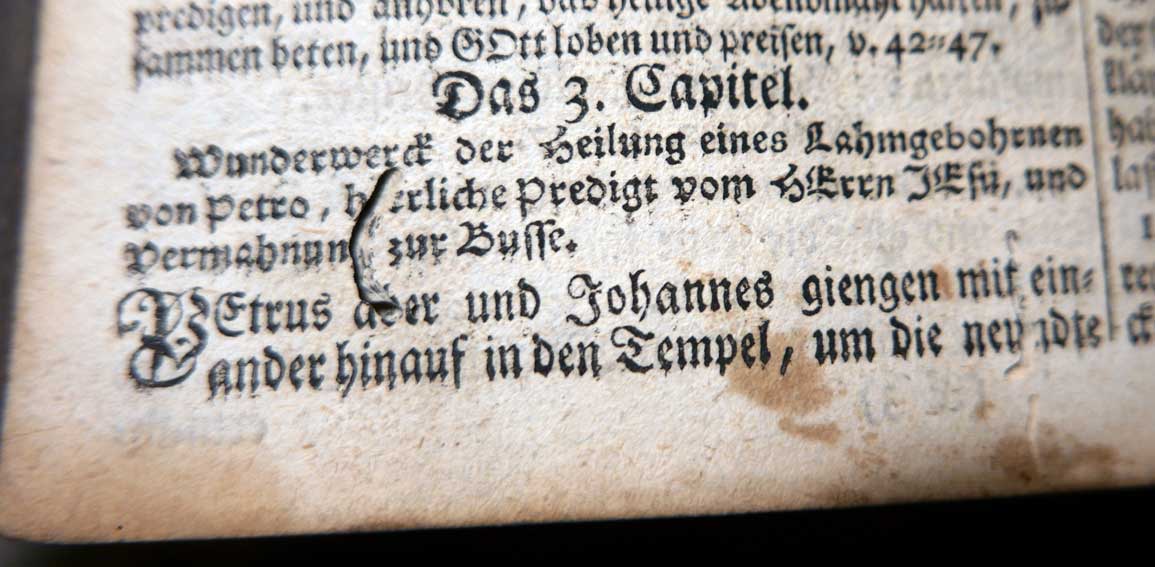 predigen, und anhören, das heilige Abendmahl halten, zu
sammen beten, und GOtt loben und preisen, v. 42=47.
Das 3. Capitel.
Wunderwerck der Heilung eines Lahmgebohrnen
von Petro, herrliche Predigt vom HErrn JEsu, und
Vermahnung zur Busse.
PEtrus aber und Johannes giengen mit ein=
ander hinauf in den Tempel, um die